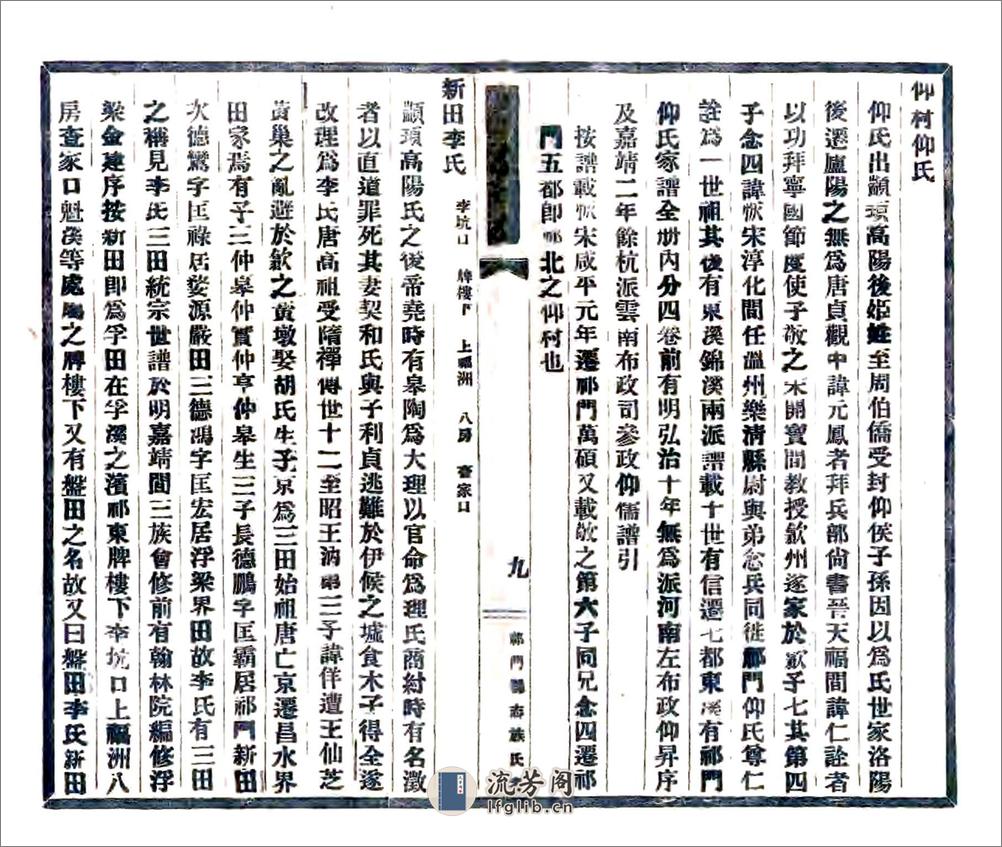 仰村仰氏
仰氏出顓頊高陽後姬姓至周伯僑受封仰侯子孫因以爲氏世家洛陽
後遷廬陽之無爲唐貞觀中諱元鳳者拜兵部尚書晉天福間諱仁詮者
以功拜寧國節度使子敬之宋開寶間教授歙州遂家於歙子七其第四
子念四諱忻宋淳化間任溫州樂清縣尉與弟念兵同徙祁門仰氏尊仁
詮爲一世祖其後有東溪錦溪兩派譜載十世有信遷七都東溪有祁門
仰氏家譜全册内分四卷前有明弘治十年無爲派河南左布政仰昇序
及嘉靖二年餘杭派雲南布政司參政仰儒譜引
按譜載忻宋咸平元年遷祁門萬碩又載敬之第六子同兄念四遷祁
門五都即祁北之仰村也
九
祁門縣志族氏考
新田李氏 李坑口 牌樓下 上福洲 八房 查家口
顓頊高陽氏之後帝堯時有皋陶爲大理以官命爲理氏商紂時有名徵
者以直道罪死其妻契和氏與子利貞逃難於伊候之墟食木子得全遂
改理爲李氏唐高祖受隋禪傳世十二至昭王汭第三子諱佯遭王仙芝
黃巢之亂避於歙之黃墩娶胡氏生子京爲三田始祖唐亡京遷昌水界
田家焉有子三仲皋仲實仲亨仲皋生三子長德鵬字匡霸居祁門新田
次德鸞字匡祿居婺源嚴田三德鴻字匡宏居浮梁界田故李氏有三田
之稱見李氏三田統宗世譜於明嘉靖間三族會修前有翰林院編修浮
梁金達序按新田即爲孚田在孚溪之濱祁東牌樓下李坑口上福洲八
房查家口魁溪等處屬之牌樓下又有盤田之名故又曰盤田李氏新田
流芳阁
lfglib.cn